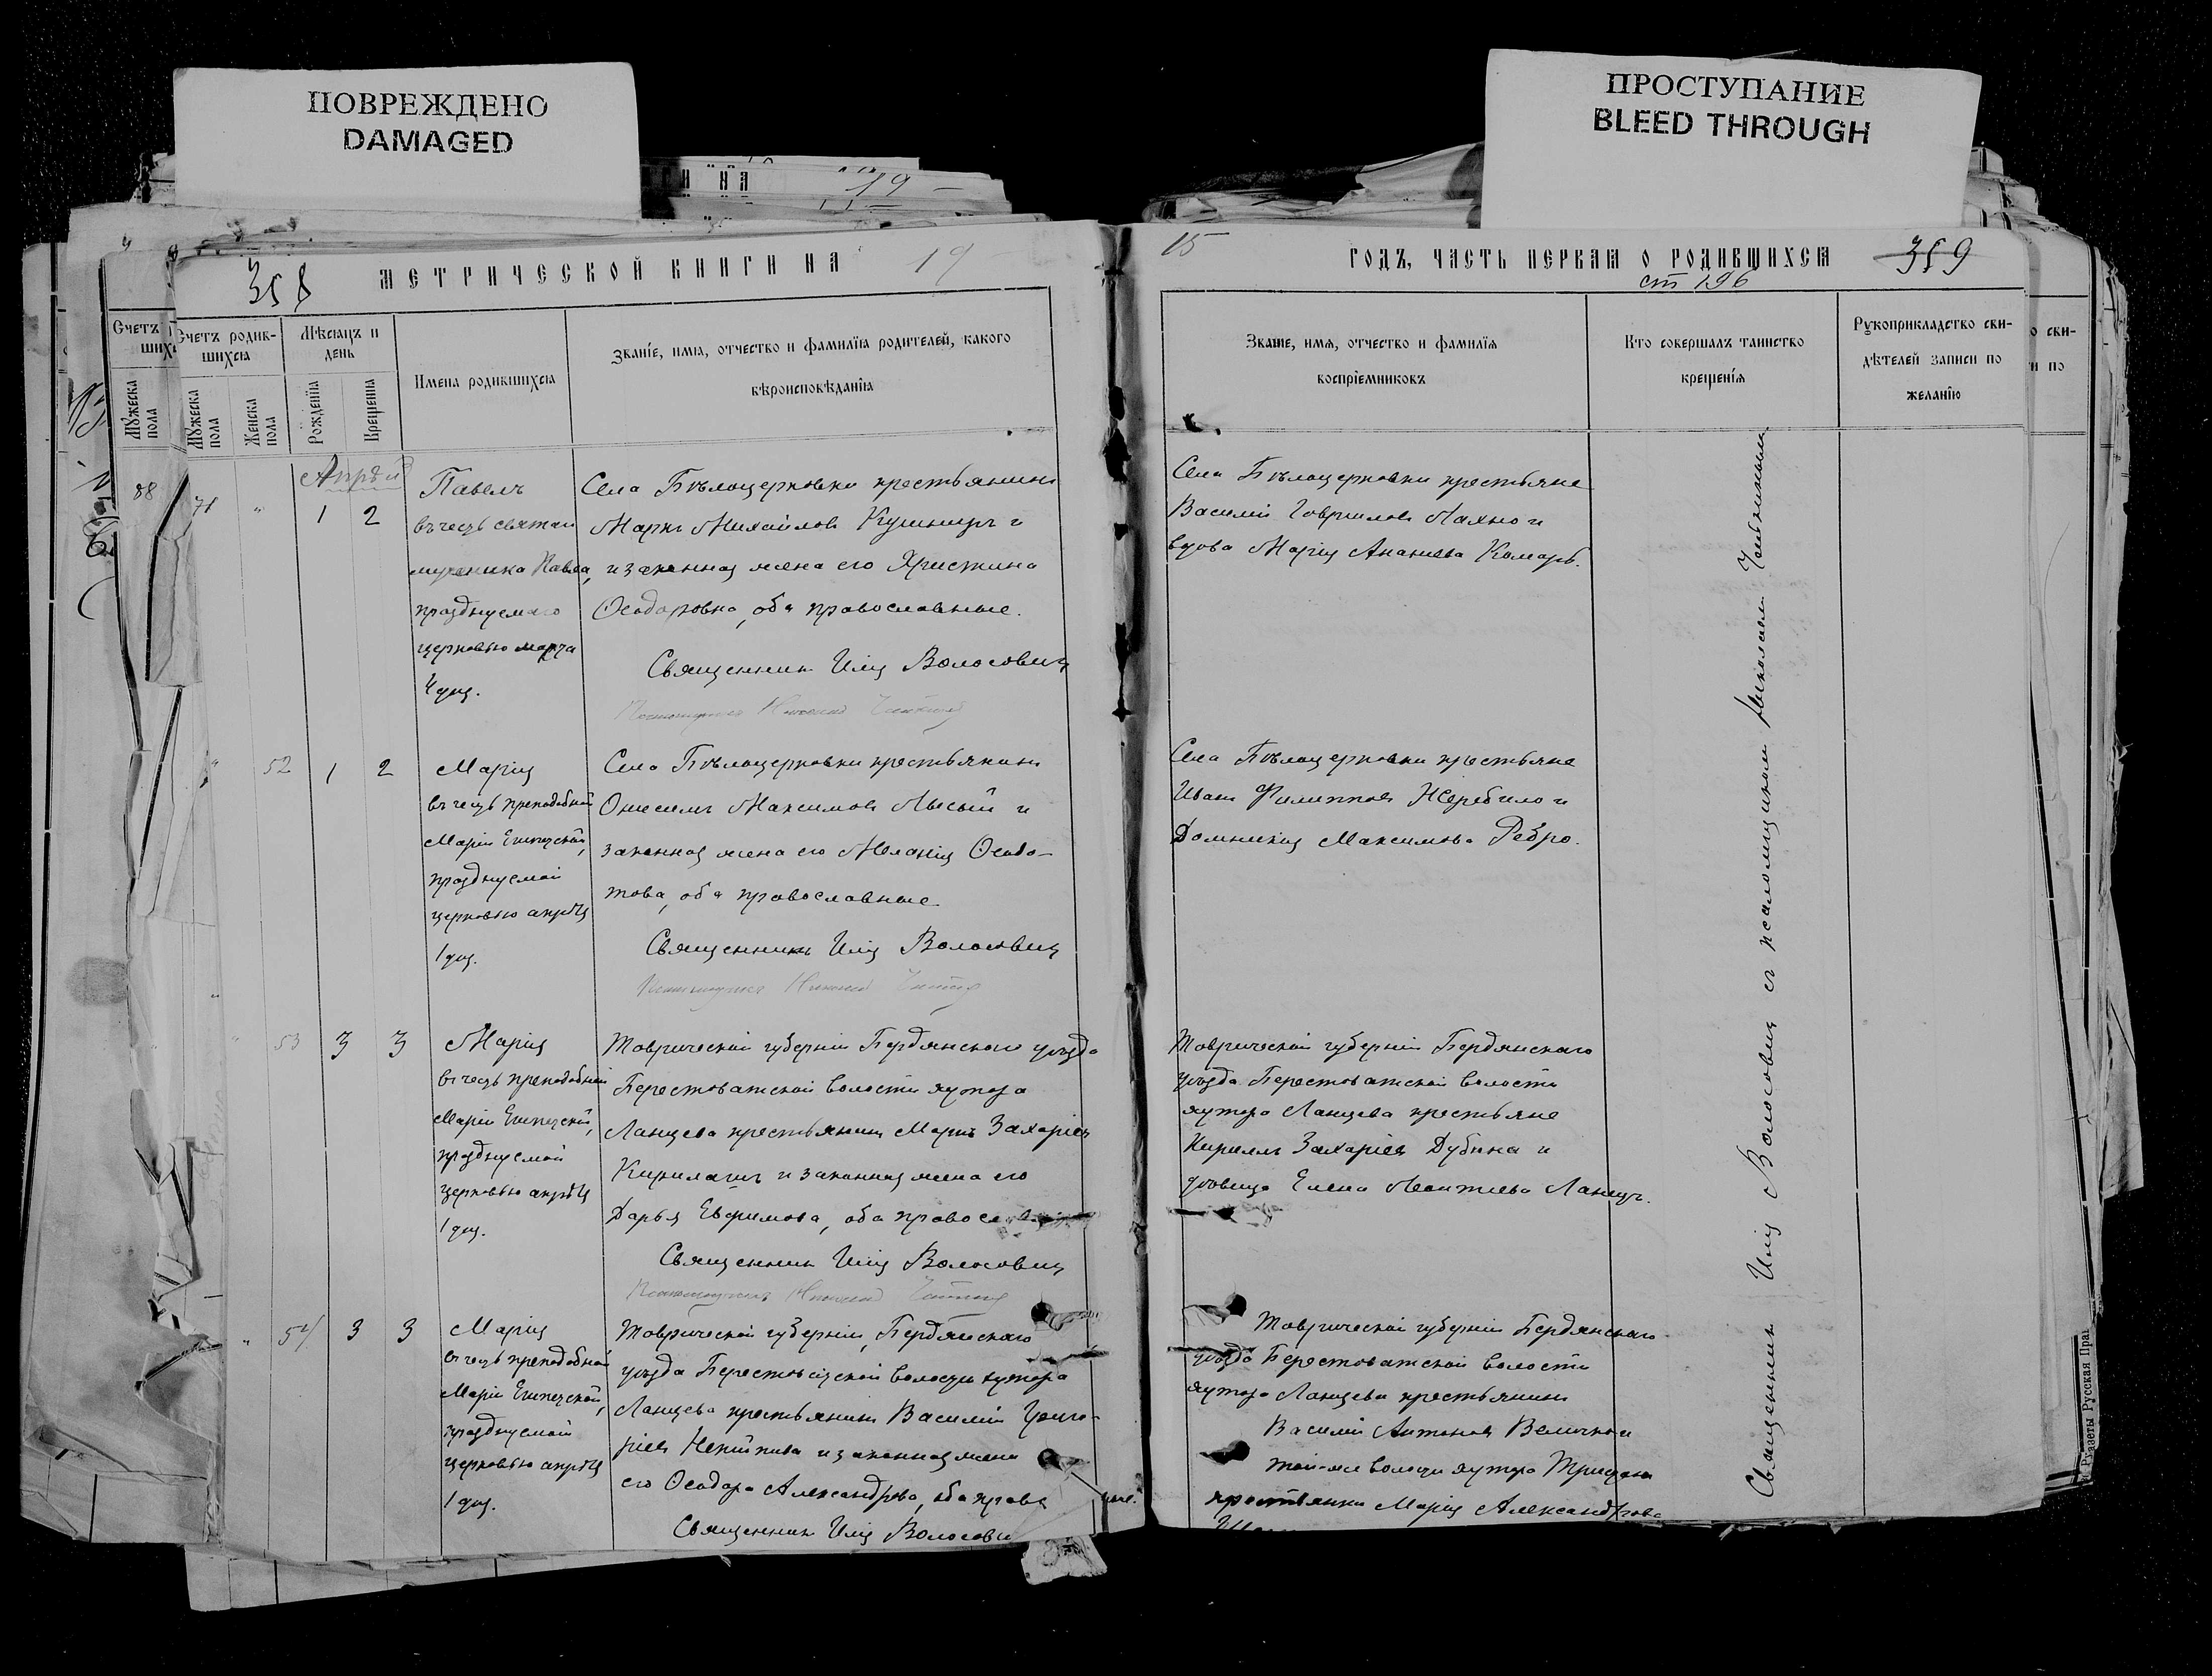 ПОВРЕЖДЕНО
DAMAGED
ПРОСТУПАНИЕ
BLEED THROUGH
358
МЕТРИЧЕСКОЙ КНИГИ НА 19
Счетъ родив-
шихся
Мѣсяцъ и
день
Мужеска
пола
Женска
пола
Рожденія
Крещенія
Имена родившихся
Званіе, имя, отчество и фамилія родителей, какого
вѣроисповѣданія
88
Апрѣль
71 " 1 2
Павелъ
въ честь святаго
мученика Павла,
празднуемаго
церковью марта
4 дня.
Села Бѣлоцерковки крестьянинъ
Маркъ Михайловъ Кушниръ и
и законная жена его Христина
Ѳеодоровна, оба православные.
Священникъ Илія Волосовичъ
Псаломщикъ Николай
" 52 1 2
Марія
въ честь преподобной
Маріи Египетской,
празднуемой
церковью апрѣля
1 дня.
Села Бѣлоцерковки крестьянинъ
Онисимъ Максимовъ Лысый и
законная жена его Меланія Ѳеодо-
това, оба православные
Священникъ Илія Волосовичъ
Псаломщикъ Николай
" 53 3 3
Марія
въ честь преподобной
Маріи Египетской,
празднуемой
церковью апрѣля
1 дня.
Таврической губерніи Бердянскаго уѣзда
Берестоватской волости хутора
Ланцева крестьянинъ Маркъ Захаріевъ
и законная жена его
Дарья Евфимова, оба правосл
Священникъ Илія Волосовичъ
Псаломщикъ Николай
" 54 3 3
Марія
въ честь преподобной
Маріи Египетской,
празднуемой
церковью апрѣля
1 дня.
Таврической губерніи, Бердянскаго
уѣзда Берестоватской волости хутора
Ланцева крестьянинъ Василій Григо-
ріевъ и законная жена
его Ѳеодора Александрова, оба право
Священникъ Илія Волосови
15 ГОДЪ, ЧАСТЬ ПЕРВАЯ О РОДИВШИХСЯ 359
ст 196
Званіе, имя, отчество и фамилія
воспріемниковъ
Кто совершалъ таинство
крещенія
Рукоприкладство сви-
дѣтелей записи по
желанію
Села Бѣлоцерковки крестьяне
Василій Гаврииловъ Махно и
вдова Марія Ананіева Комаръ.
Села Бѣлоцерковки крестьяне
Иванъ Филипповъ Жеребило и
Домникія Максимова Ребро.
Таврической губерніи Бердянскаго
уѣзда Берестоватской волости
хутора Ланцева крестьяне
Кириллъ Захаріевъ Дубина и
дѣвица Елена Леонтіева Ланецъ.
Таврической губерніи Бердянскаго
уѣзда Берестоватской волости
хутора Ланцева крестьянинъ
Василій Антоновъ Величко и
той-же волости хутора
крестьянка Марія Александрова
Священникъ Илія Волосовичъ съ псаломщикомъ Николаемъ
Газеты Русская Прав